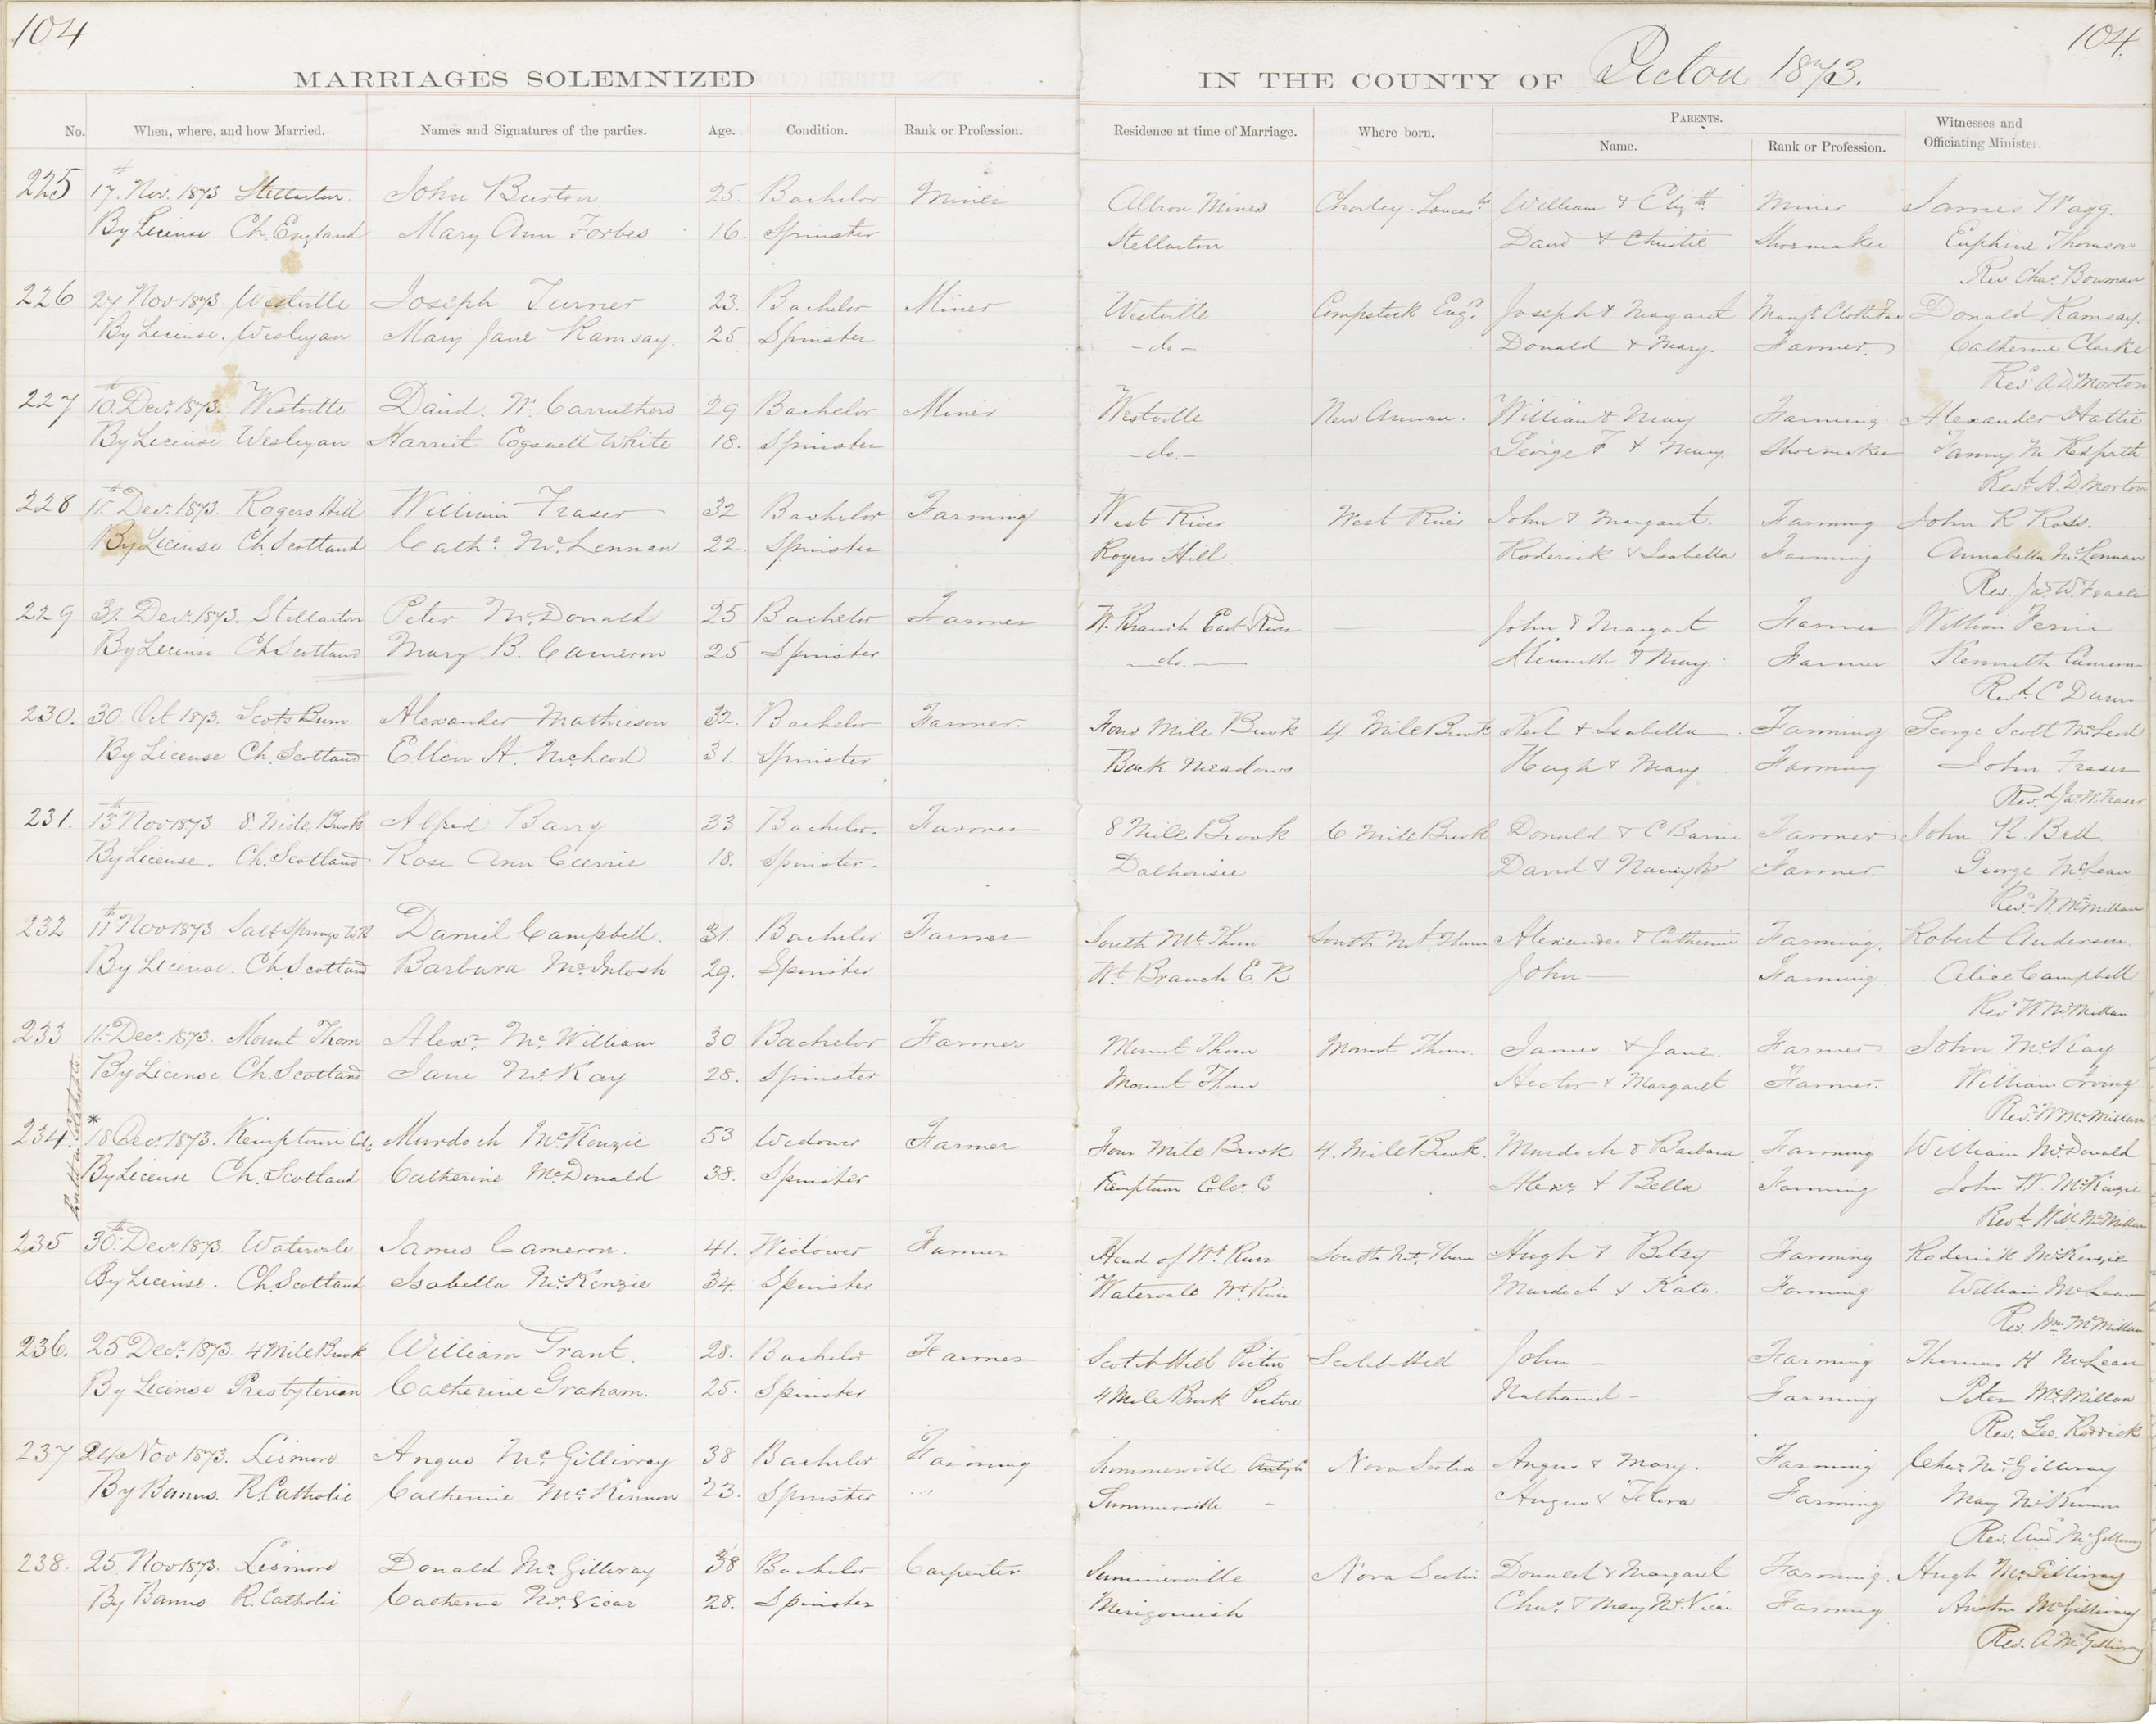 104
104
MARRIAGES SOLEMNIZED IN THE COUNTY OF Pictou 1873.
No. When, where, and how Married. Names and Signatures of the parties. Age. Condition. Rank or Profession. Residence at time of Marriage. Where born. PARENTS. Name. Rank or Profession. Witnesses and Officiating Minister.
225 17th Nov. 1873 Stellarton. John Burton 25. Bachelor Miner Albion Mines Chorley. Lancashr William & Elizth Miner James Wagg.
By License Ch. England Mary Ann Forbes 16. Spinster Stellarton David & Christie Shoemaker Euphine Thomson
Rev Chas. Bowman
226 27 Nov 1873 Westville Joseph Turner 23. Bachelor Miner Westville Compstock Engd. Joseph & Margaret Donald Ramsay.
By License. Wesleyan Mary Jane Ramsay. 25 Spinster - do - Donald & Mary. Farmer Catherine Clarke
Revd A.D. Morton
227 10th Decr. 1873. Westville David. W. Carruthers 29 Bachelor Miner Westville New Annan. William & Mary Farming Alexander Hattie
By License Wesleyan Harriet Cogswell White 18. Spinster - do. - George F & Mary. Shoemaker Fanny M Redpath
Revd. A. D. Morton
228 11th Decr. 1873. Rogers Hill William Fraser 32 Bachelor Farming West River West River John & Margaret. Farming John R Ross.
By License Ch. Scotland Cathe. McLennan 22. Spinster Rogers Hill Roderick & Isabella Farming Annabella McLennan
Rev. Jas W. Fraser
229 31. Decr. 1873. Stellarton Peter McDonald 25 Bachelor Farmer W. Branch East River John & Margaret Farmer William
By License Ch. Scotland Mary. B. Cameron 25 Spinster - do. - Kenneth & Mary. Farmer Kenneth Cameron
Revd. C Dunn
230. 30. Oct 1873. Scots Burn. Alexander Mathieson 32. Bachelor Farmer. Four Mile Brook 4 Mile Brook Neil & Isabella Farming George Scott McLeod
By License Ch. Scotland Ellen A. McLeod 31. Spinster Back Meadows Hugh & Mary Farming John Fraser
Revd Jas. W. Fraser
231. 13th Nov 1873. 8. Mile Brook Alfred Barry 33 Bachelor. Farmer 8 Mile Brook 6 Mile Brook Donald & C Farmer John R. Bell
By License. Ch. Scotland Rose Ann Currie 18. Spinster. Dalhousie David & Nancy Farmer George McLean
Revd. W. McMillan
232 11th Nov 1873 Salt Springs W.R Daniel Campbell. 31. Bachelor Farmer South Mt. Thom South Mt. Thom Alexander & Catherine Farming. Robert Anderson.
By License. Ch. Scotland Barbara McIntosh 29. Spinster Wt. Branch E. R John — Farming Alice Campbell
Revd W McMillan
233 11. Decr. 1873. Mount Thom Alexr. McWilliam 30 Bachelor Farmer Mount Thom Mount Thom. James & Jane. Farmer John McKay
By License Ch. Scotland Jane McKay 28. Spinster Mount Thom Hector & Margaret Farmer. William Irving
Revd. W McMillan
234. * 18 Decr. 1873. Kemptown Murdoch McKenzie 53 Widower Farmer Four Mile Brook 4. Mile Brook. Murdoch & Barbara Farming William McDonald
By License Ch. Scotland Catherine McDonald 38. Spinster Kemptown Colr. C Alexr. & Bella Farming John W. McKenzie
Revd. Will McMillan
235 30th Decr. 1873. Watervale James Cameron. 41. Widower Farmer Head of Wt. River South Mt. Thom Hugh & Betsy Farming Roderick McKenzie
By License. Ch. Scotland Isabella McKenzie 34. Spinster Watervale Wt. River Murdoch & Kate. Farming William McLean
Rev. Wm. McMillan
236. 25 Decr. 1873. 4 Mile Brook William Grant. 28. Bachelor Farmer Scotch Hill Pictou Scotch Hill John — Farming Thomas H McLean
By License Presbyterian Catherine Graham. 25. Spinster 4 Mile Brook Pictou Nathaniel - Farming Peter McMillan
Rev. Geo. Roddick
237 24 Nov 1873. Lismore Angus McGillivray 38 Bachelor Farming Summerville Nova Scotia Angus & Mary. Farming Chas. McGillivray
By Banns. R. Catholic Catherine McKinnon 23. Spinster Summerville - Angus & Flora Farming Mary McKinnon
Rev. Andw McGillivray
238. 25 Nov 1873. Lismore Donald McGillivray 38 Bachelor Carpenter Summerville Nova Scotia Donald & Margaret Farming. Hugh McGillivray
By Banns R. Catholic Catherine McVicar 28. Spinster Merigomish Chas. & Mary McVicar Farming Austin McGillivray
Rev. A McGillivray